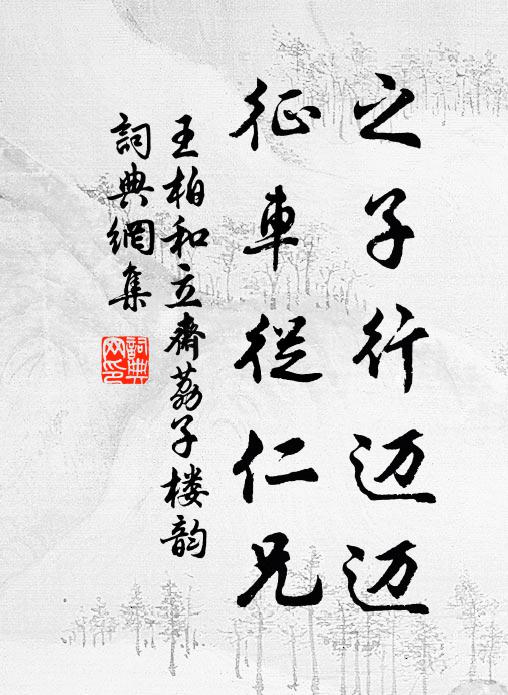 之子行迈迈
征車從仁兄
王柏和立齋荔子楼韵
詞典網集
詞典网印